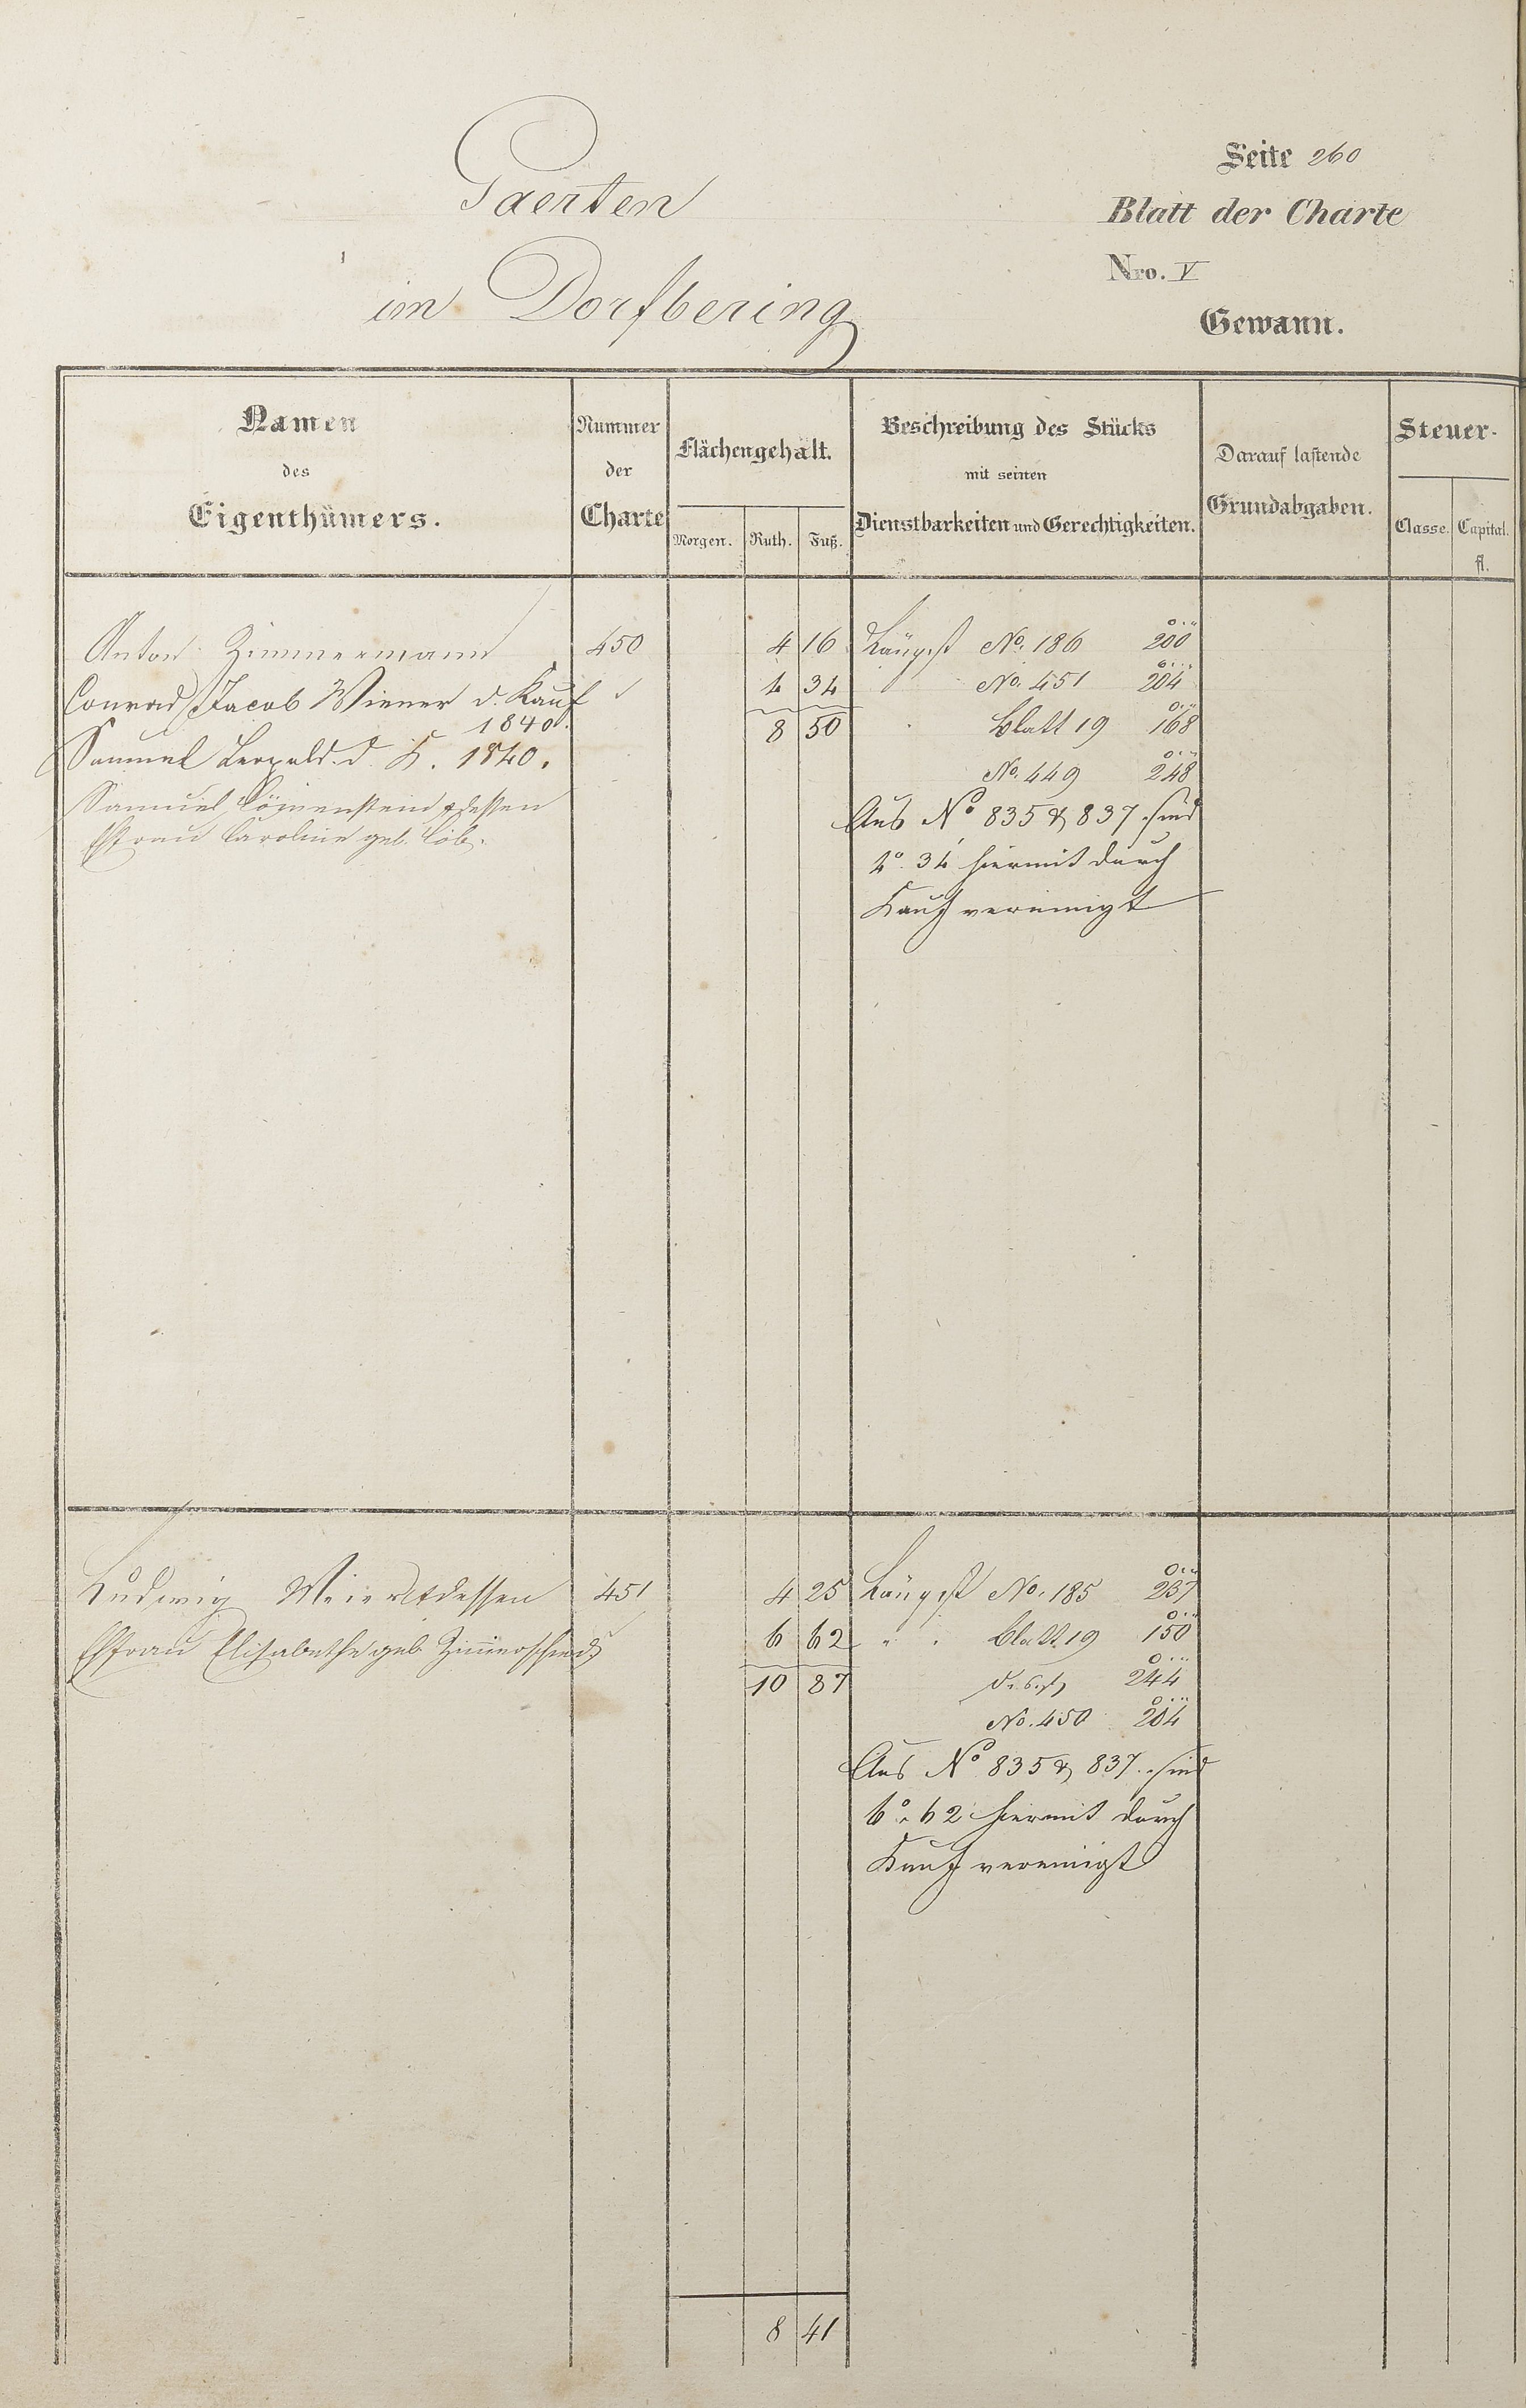 Gaerten
im Dorfbering
Seite 260
Blatt der Charte
Nro. V
Gewann.
Namen
des
Eigenthümers.
Nummer
der
Charte
Flächengehalt.
Morgen. Ruth. Fuß.
Beschreibung des Stücks
mit seinen
Dienstbarkeiten und Gerechtigkeiten.
Darauf lastende
Grundabgaben.
Steuer-
Classe. Capital.
fl.
Anton Zimmermann 450 4 16 Längst No. 186 200
Conrad Jacob Wiener d. Kauf 4 34 No. 451 204
1840. 8 50 Blatt 19 168
Samuel Leopold d. K. 1840. No. 449 248
Samuel Löwenstein & dessen
Ehfrau Caroline geb. Löb.
Aus No 835 & 837 sind
4° 34' hiermit durch
Kauf vereinigt
Ludwig Meier & dessen 451 4 25 Längst No. 185 237
Ehfrau Elisabethe geb. Zimerschied 6 62 " " Blatt 19 150
10 87 244
No. 450 204
Aus No 835 & 837 sind
6° 62 hiermit durch
Kauf vereinigt
8 41